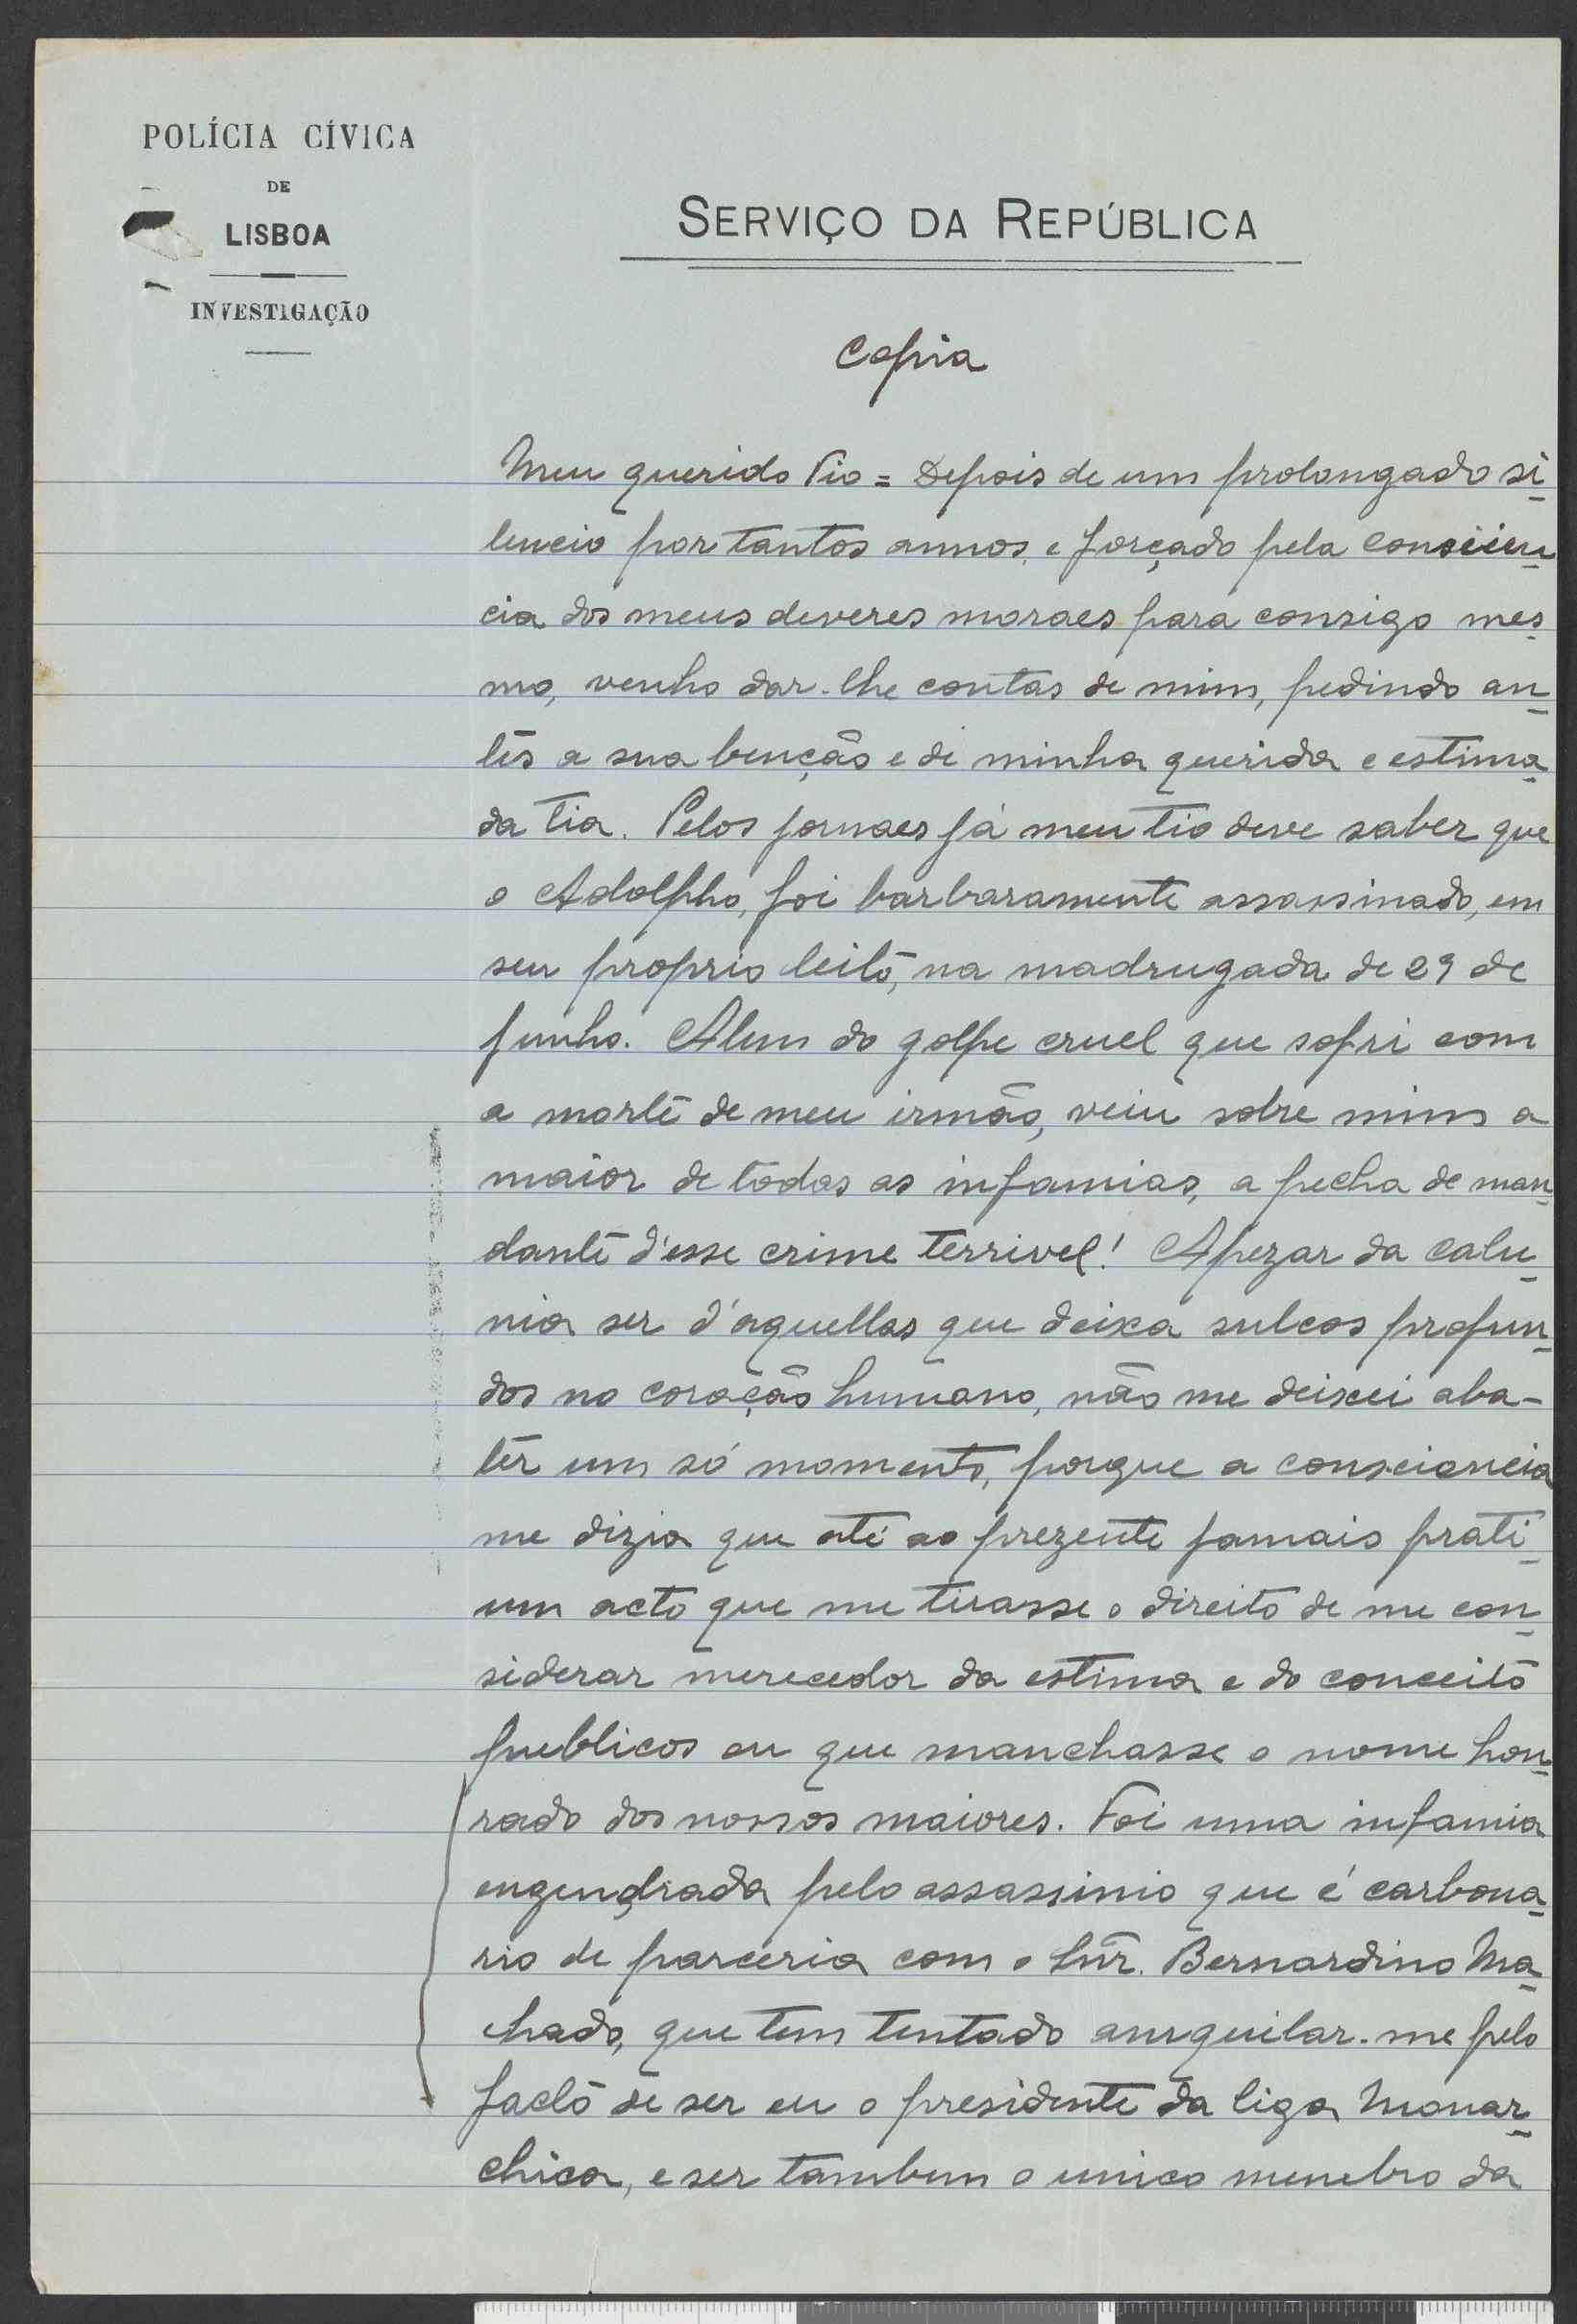 POLÍCIA CÍVICA
DE
LISBOA
INVESTIGAÇÃO
SERVIÇO DA REPÚBLICA
Copia
Meu querido Tio = Depois de um prolongado si-
lencio por tantos annos, e forçado pela conscien-
cia dos meus deveres moraes para consigo mes-
mo, venho dar-lhe contas de mim, pedindo an-
tes a sua benção e de minha querida e estima-
da tia. Pelos jornaes já meu tio deve saber que
o Adolpho, foi barbaramente assassinado, em
seu proprio leito, na madrugada de 29 de
junho. Alem do golpe cruel que sofri com
a morte de meu irmão, veiu sobre mim a
maior de todas as infamias, a pecha de man-
dante d'esse crime terrivel! Apezar da calu-
nia ser d'aquellas que deixa sulcos profun-
dos no coração humano, não me deixei aba-
ter um só momento, porque a consciencia
me dizia que até ao prezente jamais prati-
um acto que me tirasse o direito de me con-
siderar merecedor da estima e do conceito
publicos ou que manchasse o nome hon-
rado dos nossos maiores. Foi uma infamia
engendrada pelo assassinio que é carbona-
rio de parceria com o Snr. Bernardino Ma-
chado, que tem tentado aniquilar-me pelo
facto de ser eu o presidente da liga Monar-
chica, e ser tambem o unico membro da